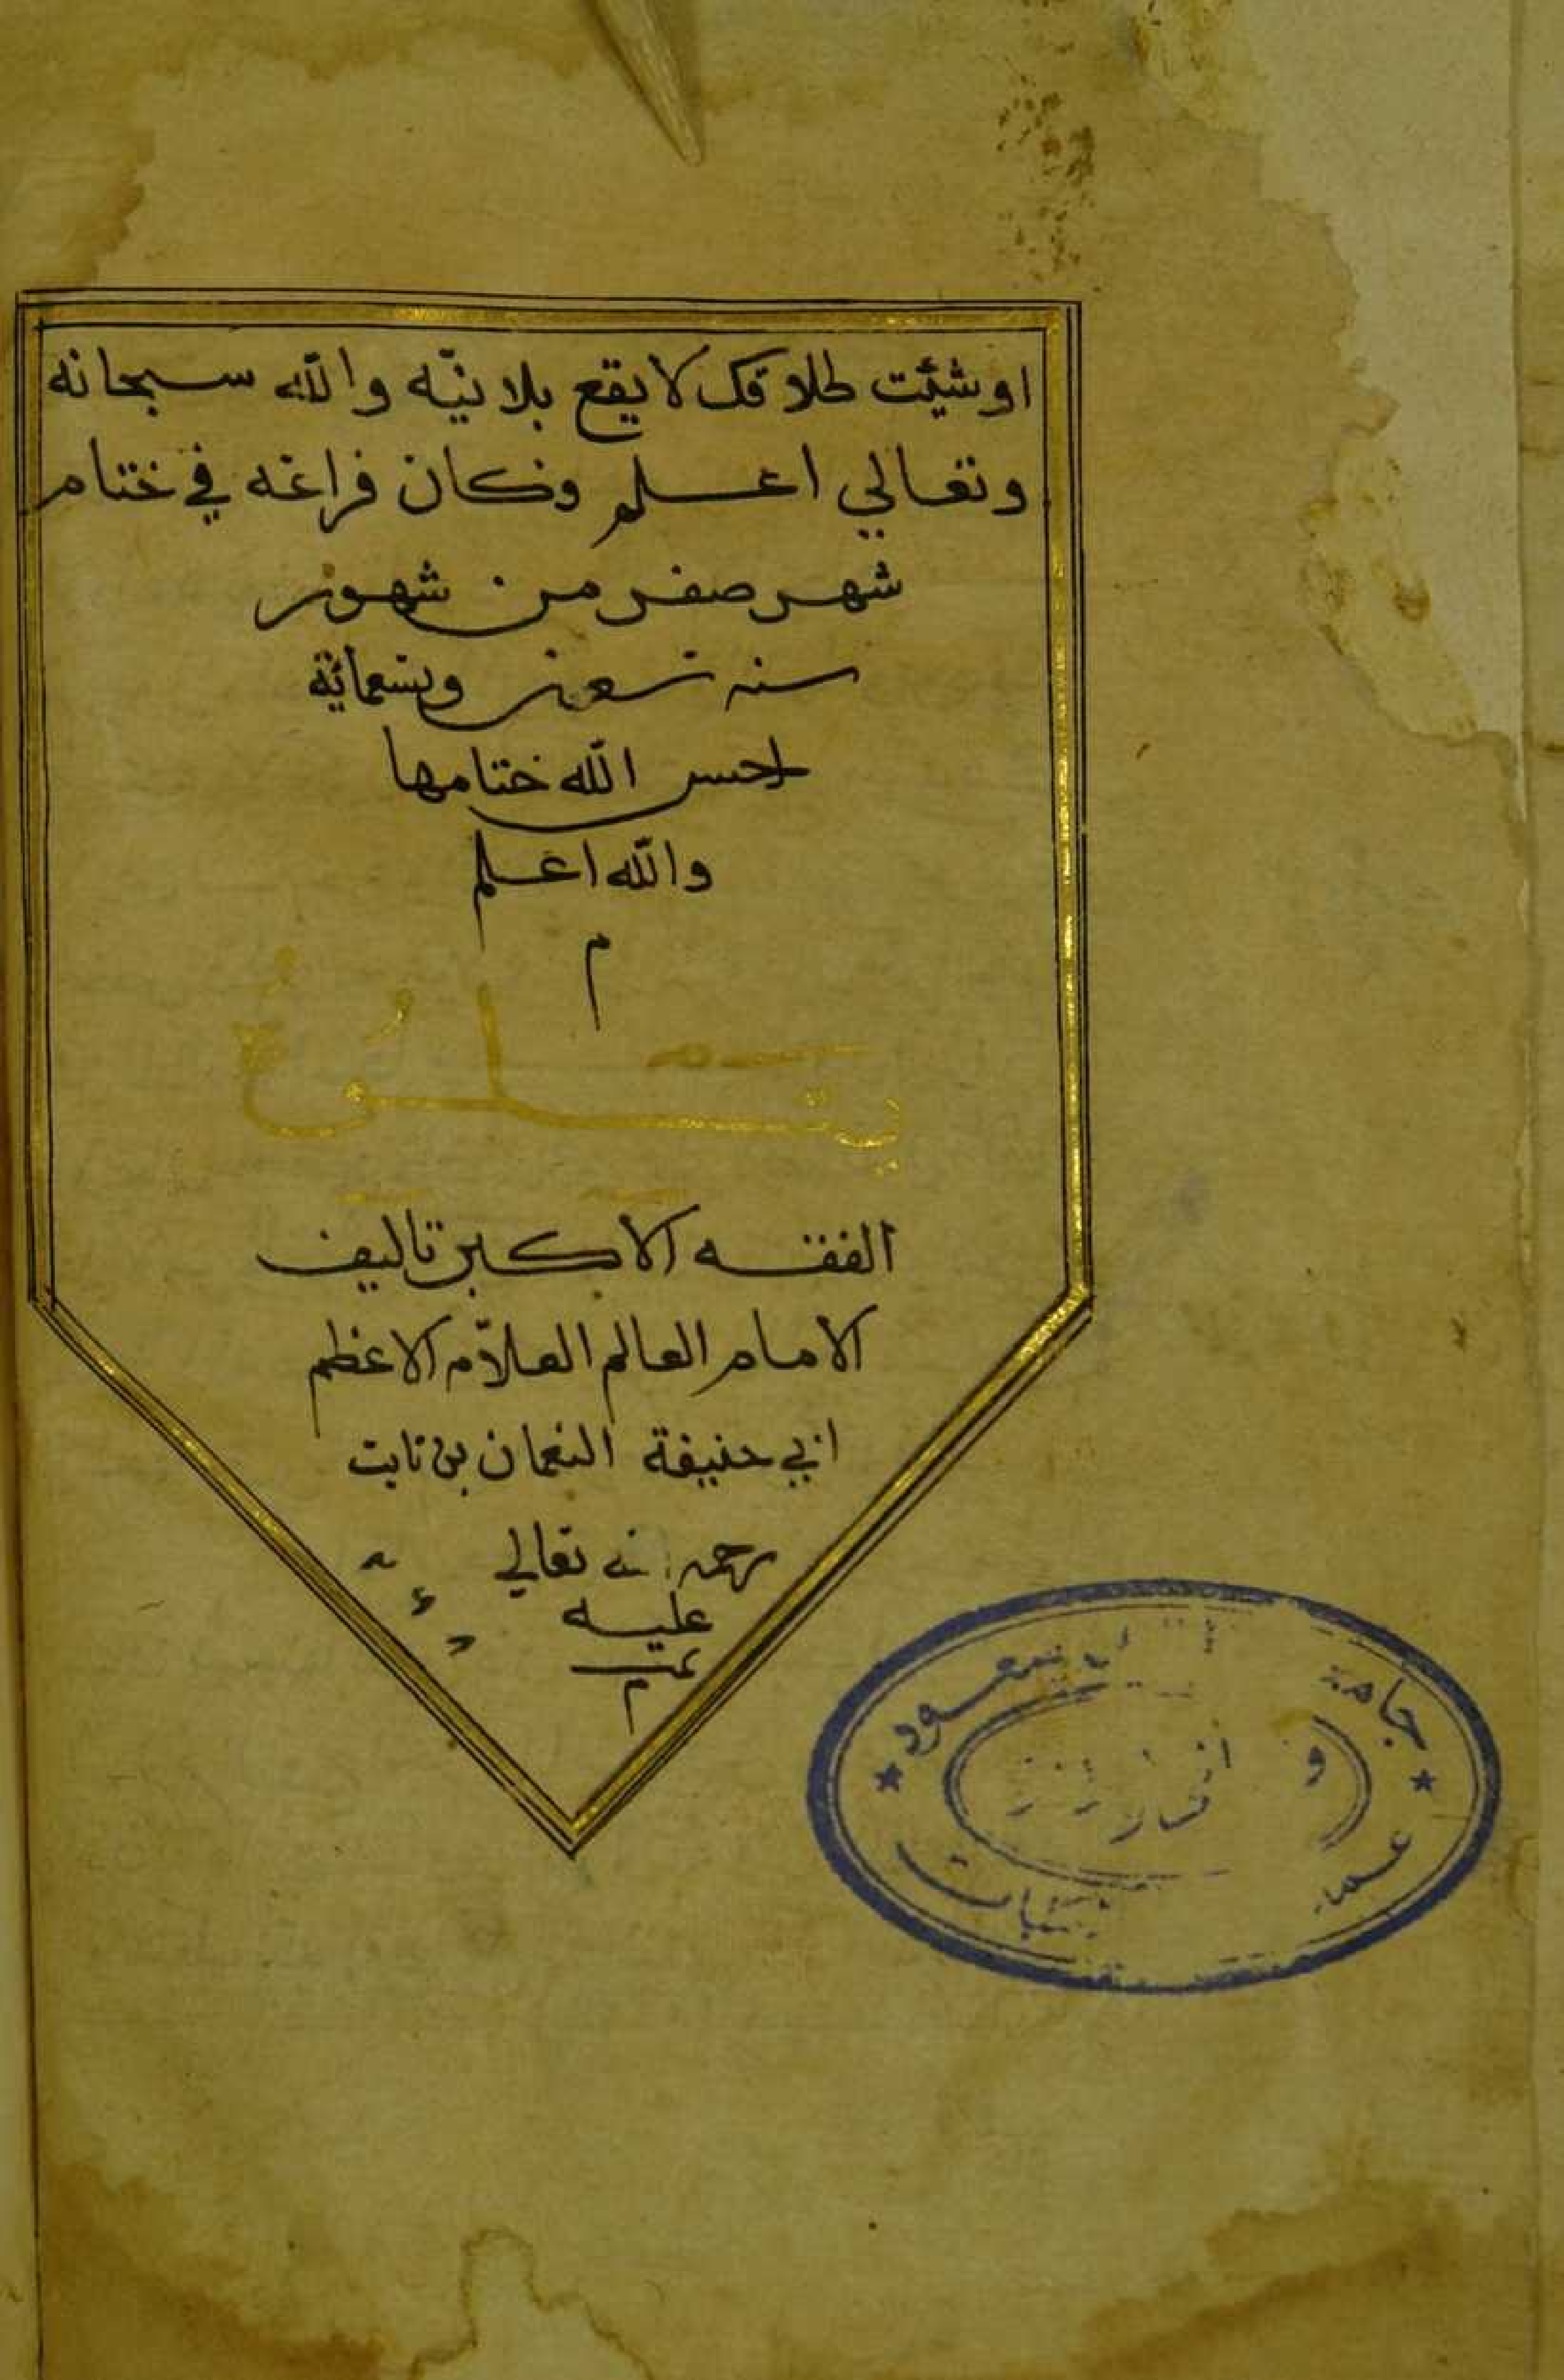 او شيئت طلاقك لا يقع بلا نيّه والله سبحانه
وتعالي اعلم وكان فراغه في ختام
شهر صفر من شهور
سنه تسعين وتسعمائة
احسن الله ختامها
والله اعلم
م
يتلوه
الفقه الاكبر تاليف
الامام العالم العلاّم الاعظم
ابي حنيفة النعمان بن ثابت
رحمة الله تعالي
عليه
تمت
م
جامعة سعود